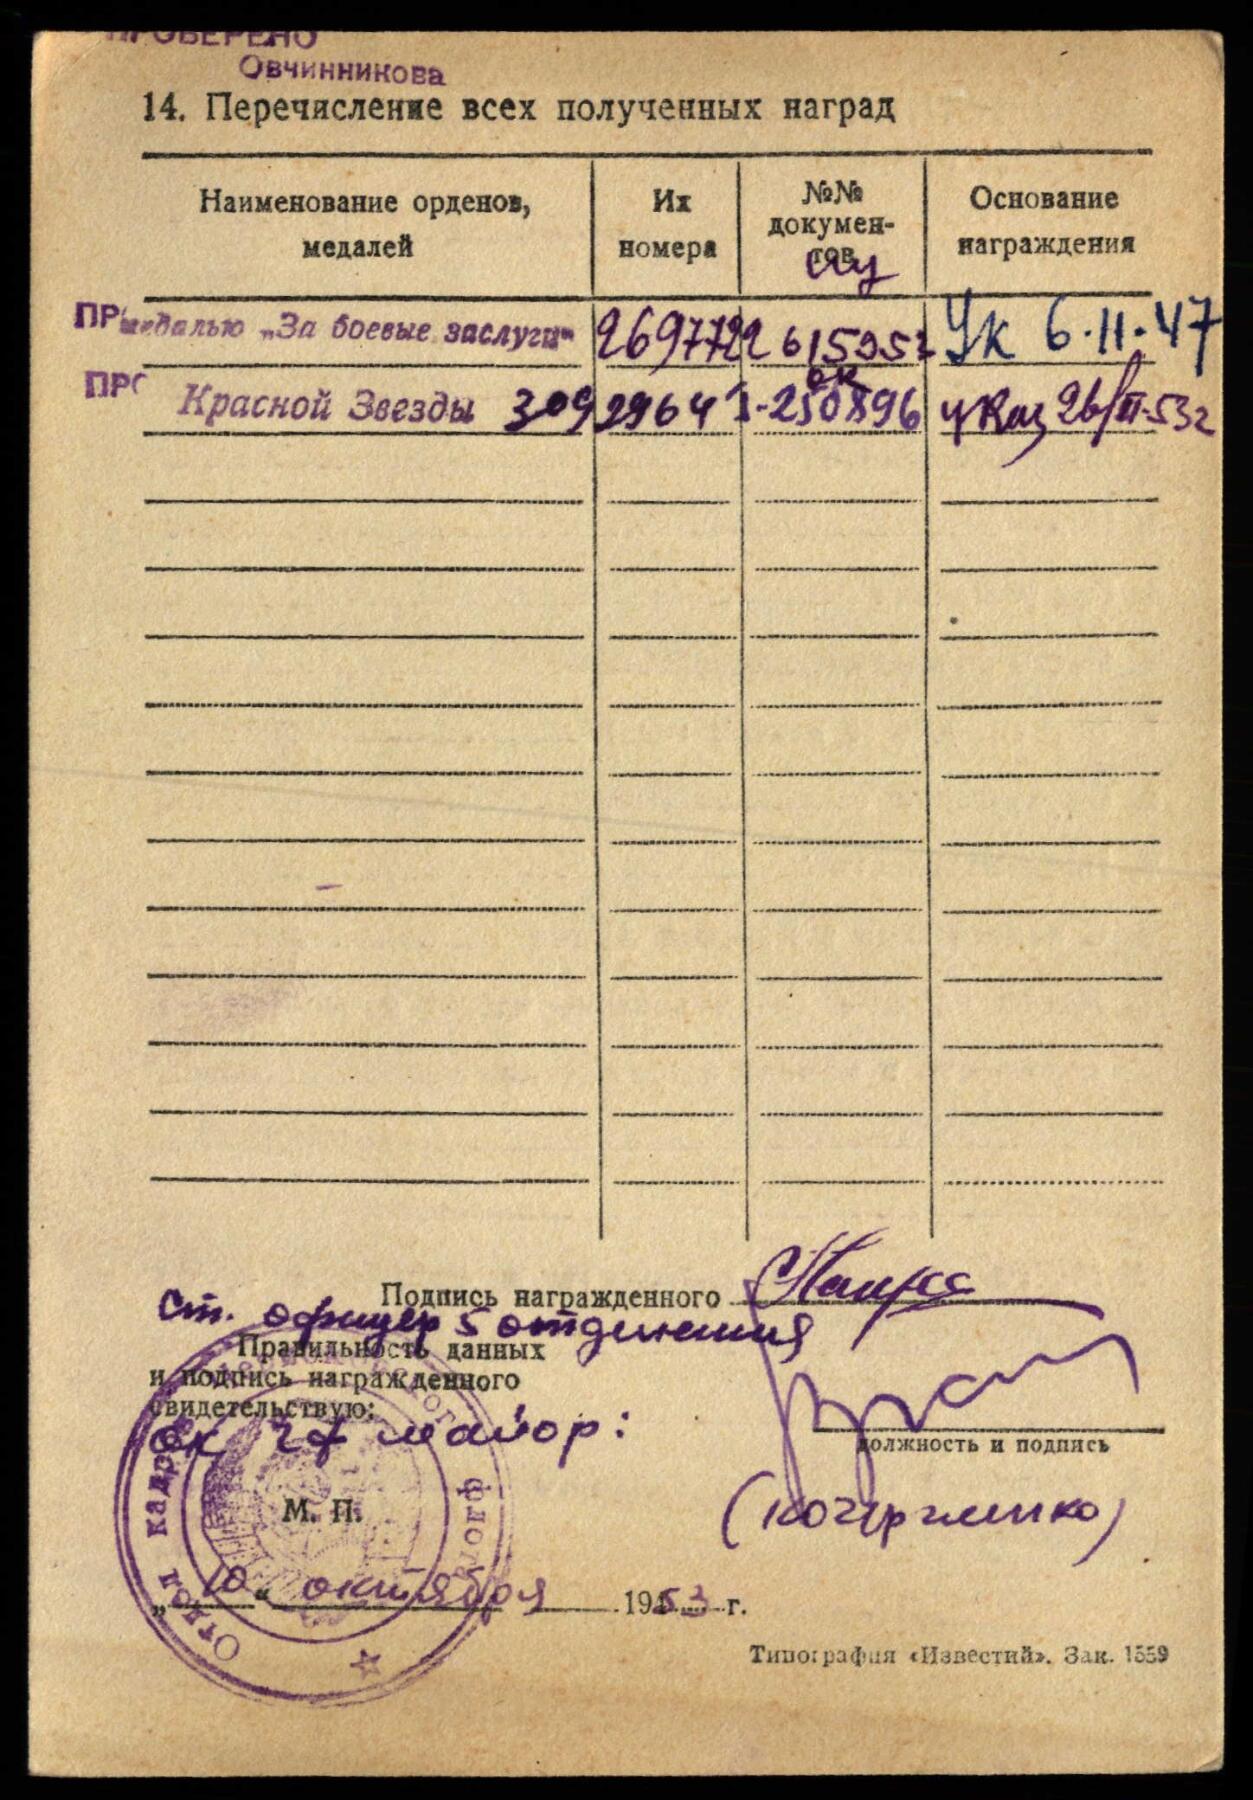 ПРОВЕРЕНО
Овчинникова
14. Перечисление всех полученных наград
Наименование орденов, медалей
Их номера
№№ документов
Основание награждения
медалью „За боевые заслуги" 2697722 Ук 6·11·47
Красной Звезды 3092964 250896 указ 26/II-53г
Подпись награжденного
Ст. офицер 5 отделения
Правильность данных
и подпись награжденного
свидетельствую:
майор:
должность и подпись
М. П.
„10" октября 1953 г.
Отдел кадров
Типография «Известий». Зак. 1559